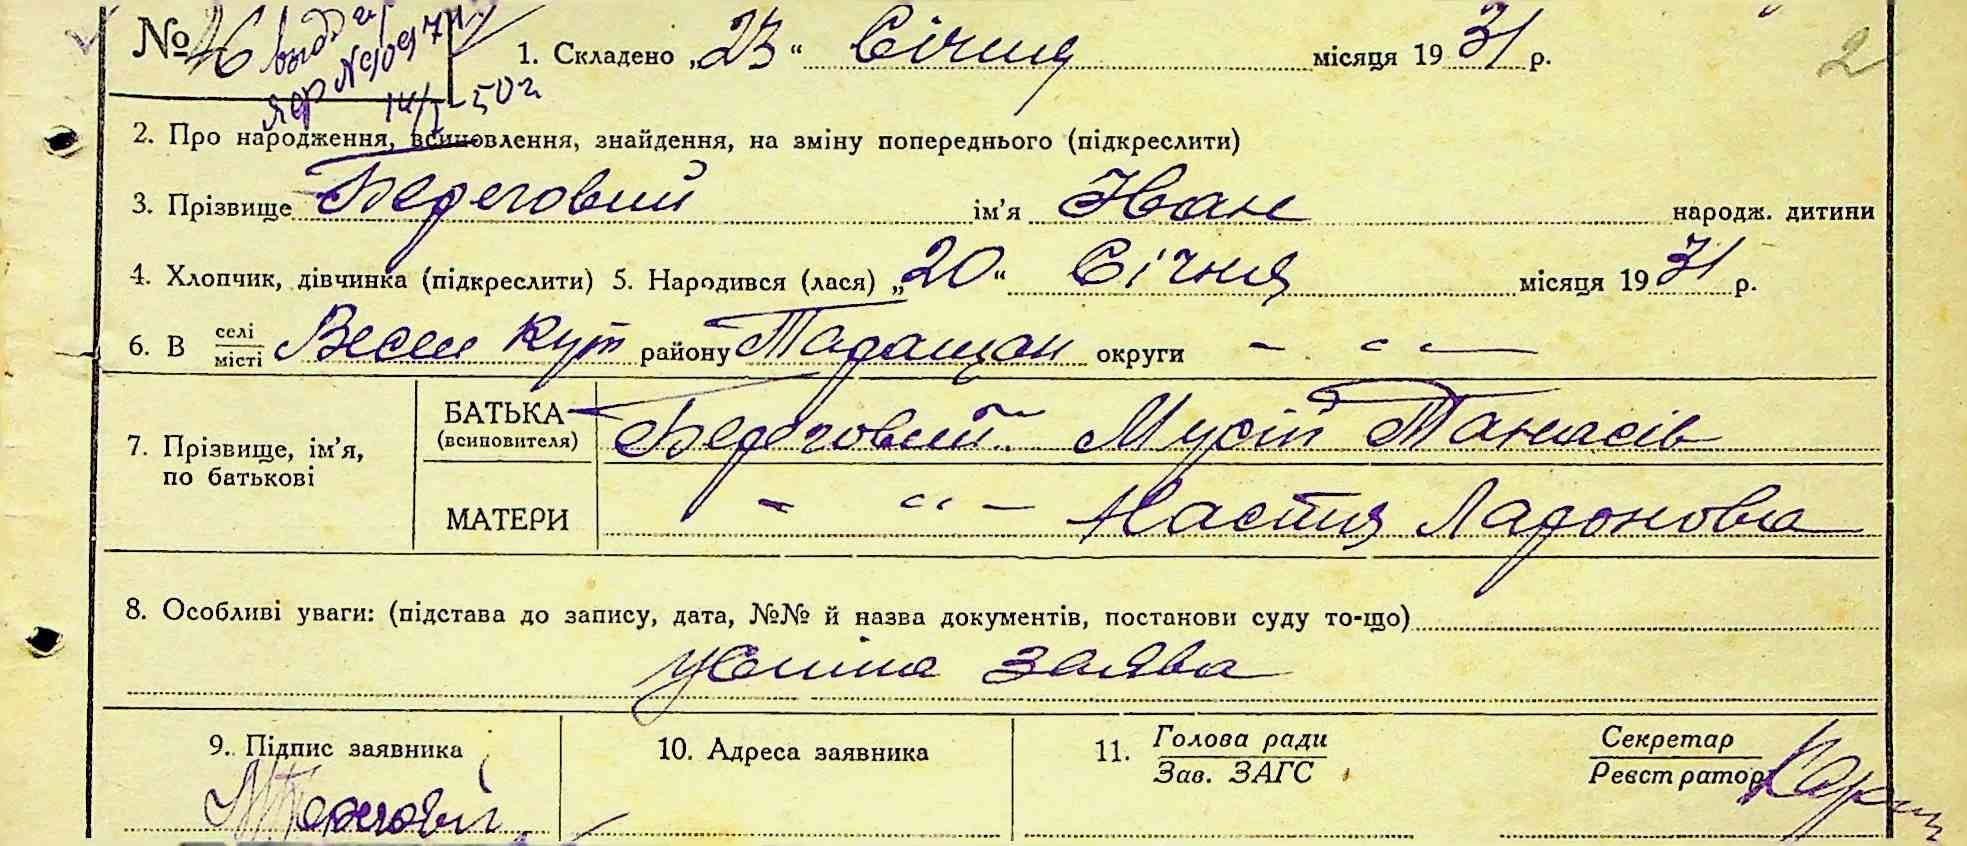 № 26
14/I-50г
1. Складено „23“ Січня місяця 1931 р.
2
2. Про народження, всиновлення, знайдення, на зміну попереднього (підкреслити)
3. Прізвище Береговий ім'я Иван народж. дитини
4. Хлопчик, дівчинка (підкреслити) 5. Народився (лася) „20“ Січня місяця 1931 р.
6. В селі місті Весел Кут району Таращан округи - " -
7. Прізвище, ім'я, по батькові
БАТЬКА (всиновителя) Береговий Мусій Танасів
МАТЕРИ - " - Настия Ларонова
8. Особливі уваги: (підстава до запису, дата, №№ й назва документів, постанови суду то-що)
Усніна заява
9. Підпис заявника 10. Адреса заявника 11. Голова ради Зав. ЗАГС Секретар Реєстратор
Береговій